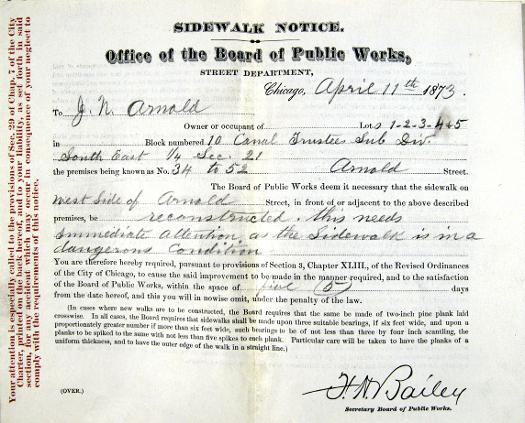 SIDEWALK NOTICE.
Office of the Board of Public Works,
STREET DEPARTMENT,
Chicago, April 11th 1873.
To J. N. Arnold
Owner or occupant of Lots 1-2-3-4&5
in Block numbered 10 Canal Trustees Sub Div.
South East 1/4 Sec. 21
the premises being known as No. 34 to 52 Arnold Street.
The Board of Public Works deem it necessary that the sidewalk on
West Side of Arnold Street, in front of or adjacent to the above described
premises, be reconstructed. this needs
immediate attention, as the Sidewalk is in a
dangerous Condition
You are therefore hereby required, pursuant to provisions of Section 3, Chapter XLIII., of the Revised Ordinances
of the City of Chicago, to cause the said improvement to be made in the manner required, and to the satisfaction
of the Board of Public Works, within the space of five (5) days
from the date hereof, and this you will in nowise omit, under the penalty of the law.
(In cases where new walks are to be constructed, the Board requires that the same be made of two-inch pine plank laid
crosswise. In all cases, the Board requires that sidewalks shall be made upon three suitable bearings, if six feet wide, and upon a
proportionately greater number if more than six feet wide, such bearings to be of not less than three by four inch scantling, the
planks to be spiked to the same with not less than five spikes to each plank. Particular care will be taken to have the planks of a
uniform thickness, and to have the outer edge of the walk in a straight line.)
(OVER.)
H. N. Bailey
Secretary Board of Public Works.
Your attention is especially called to the provisions of Sec. 29 of Chap. 7 of the City
Charter, printed on the back hereof, and to your liability, as set forth in said
section, for any accident which may occur in consequence of your neglect to
comply with the requirements of this notice.